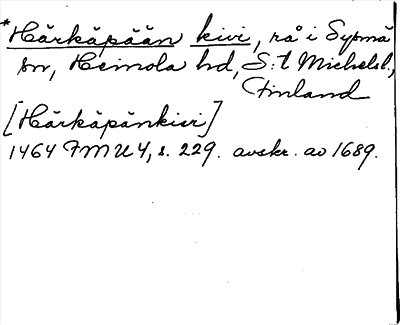 *Härkäpään kivi, rå i Sysmä
sn, Heinola hd, S:t Michels l.,
Finland
[Härkäpänkivi]
1464 FMU 4, s. 229. avskr. av 1689.